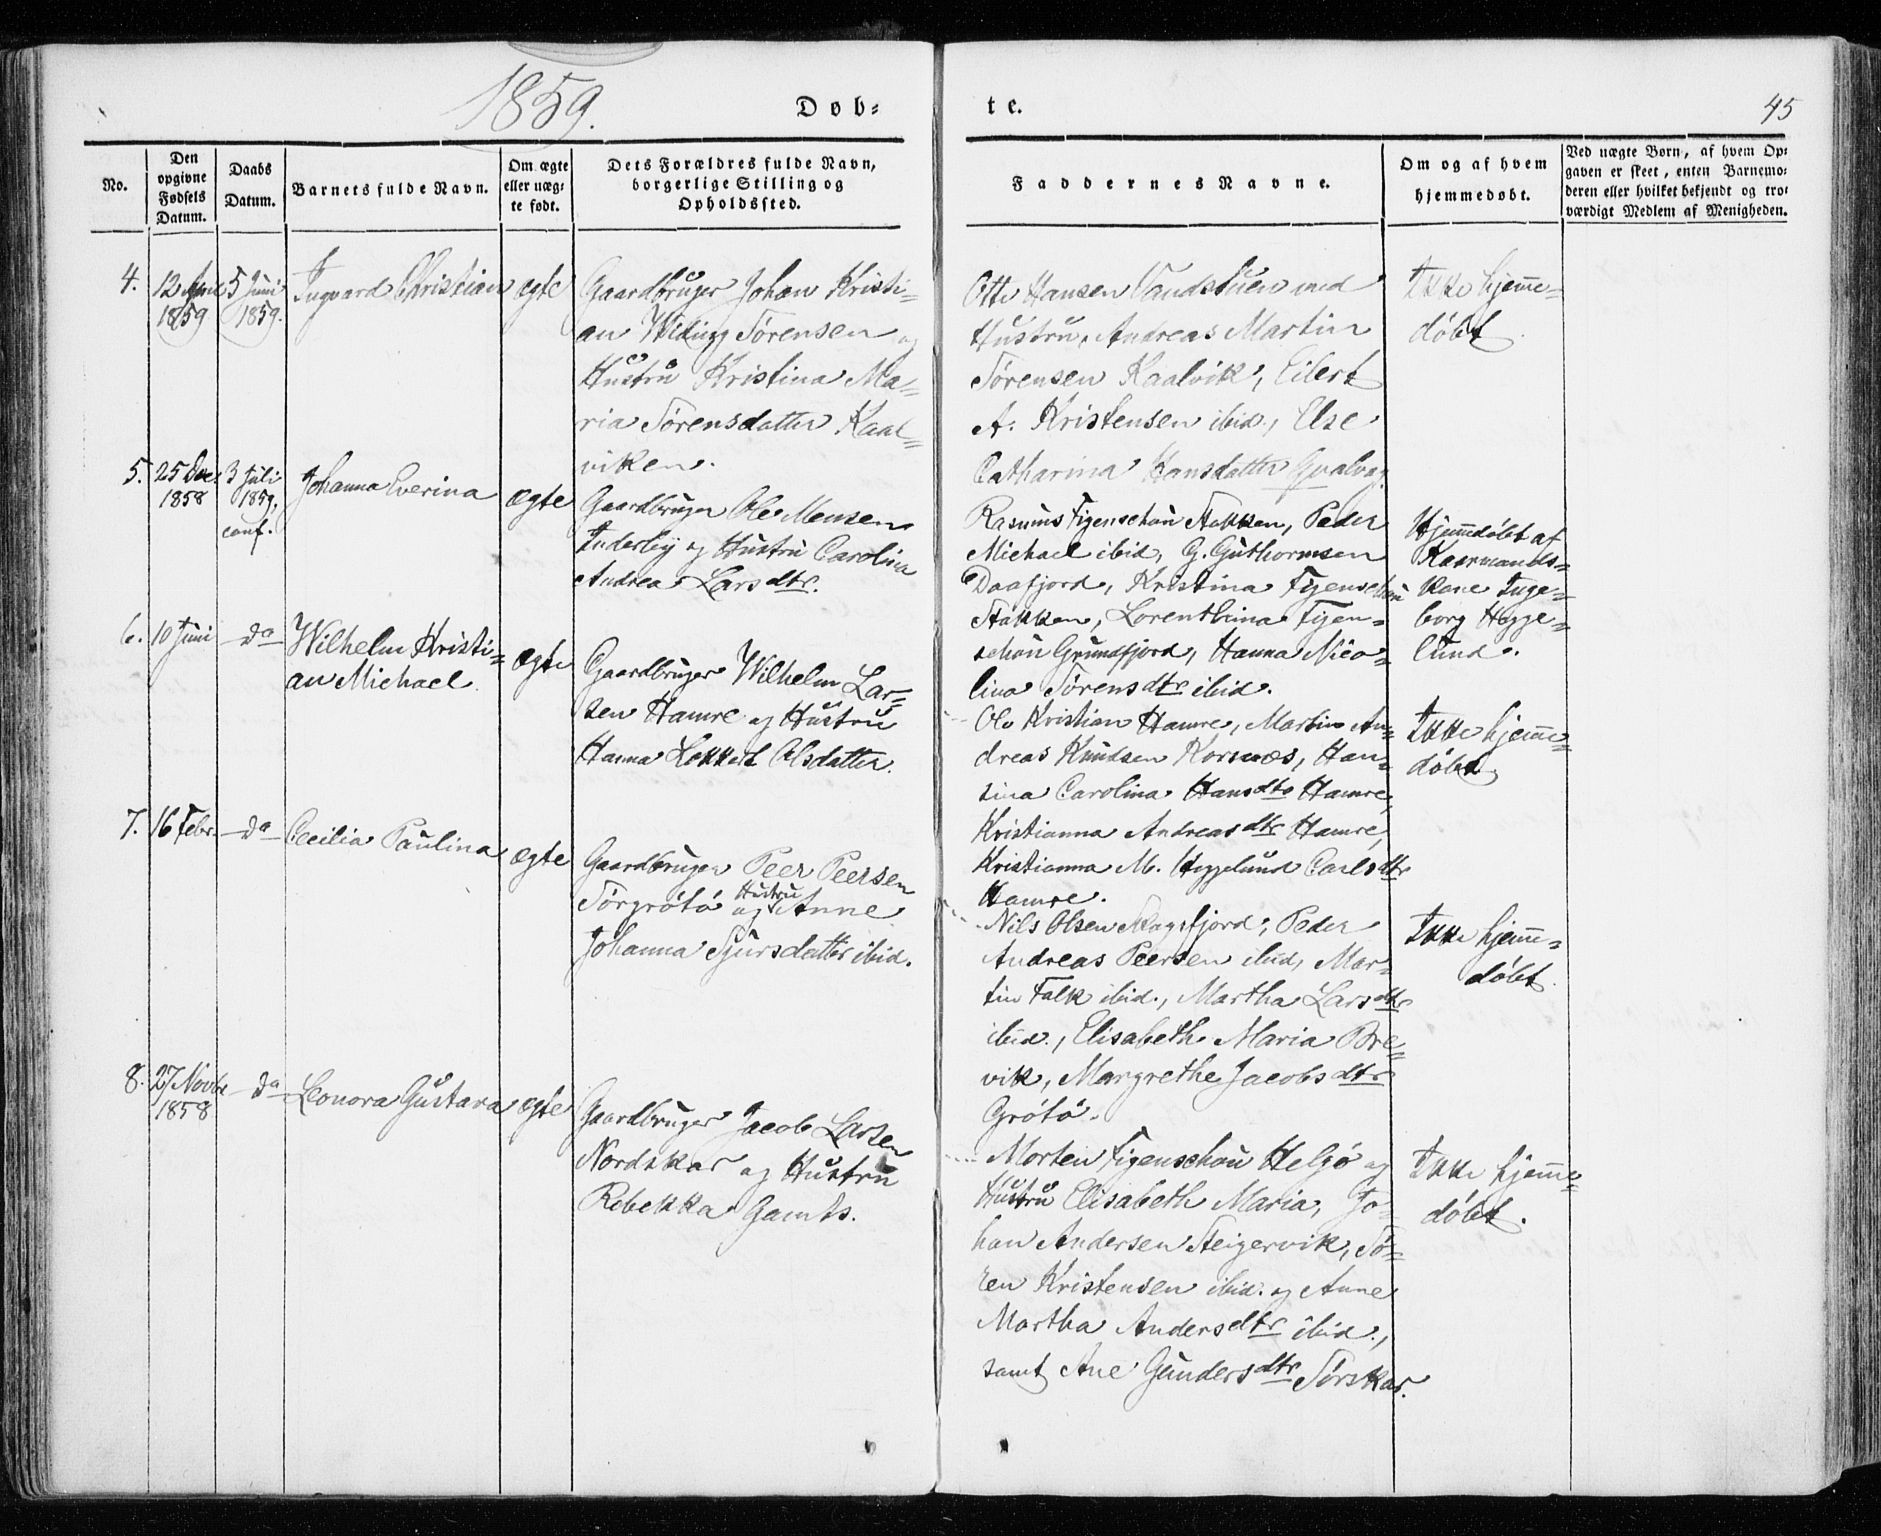 1859.
Døb-
te.
45
No.
Den opgivne Fødsels Datum.
Daabs Datum.
Barnets fulde Navn.
Om ægte eller uæg-te født.
Dets Forældres fulde Navn, borgerlige Stilling og Opholdssted.
Faddernes Navne.
Om og af hvem hjemmedøbt.
Ved uægte Børn, af hvem Op-gaven er skeet, enten Barnemo-deren eller hvilket bekjendt og tro-værdigt Medlem af Menigheden.
4.
12 April
1859
5 Juni
1859.
Ingvard Christian
ægte
Gaardbruger Johan Kristi-
an Wiking Sørensen og
Hustru Kristina Ma-
ria Sørensdatter Kaal-
viken.
Otto Hansen Vandstuen med
Hustru, Andreas Martin
Sørensen Kaalvik, Eilert
A. Kristensen ibid., Else
Catharina Hansdatter Qvalvag.
Ikke hjemme-
døbt.
5.
25 Dec.
1858
3 Juli
1859.
conf.
Johanna Everina
ægte
Gaardbruger Ole Mensen
Inderby og Hustru Carolina
Andrea Larsdtr.
Rasmus Figenschou Stakken, Peder
Michael ibid, G. Guthormsen
Daafjord, Kristina Figenschou
Stakken, Lorenthina Figen-
schou Grundfjord, Hanna Nico-
lina Sørensdtr ibid.
Hjemmdøbt af
Kaarmands-
kone Inge-
borg Hegge-
lund.
6.
10 Juni
do
Wilhelm Kristi-
an Michael
ægte
Gaardbruger Wilhelm Lar-
sen Hamre og Hustru
Hanna Lokkert Olsdatter.
Ole Kristian Hamre, Martin An-
dreas Knudsen Kornæs, Han-
sina Carolina Hansdtr Hamre,
Kristianna Andreasdtr Hamre,
Kristianna M. Heggelund Carlsdtr
Hamre.
Ikke hjemme-
døbt.
7.
16 Febr.
do
Cecilia Paulina
ægte
Gaardbruger Peer Peersen
Sørgrøtø og Hustru Anne
Johanna Sjursdatter ibid.
Nils Olsen Skogsfjord, Peder
Andreas Peersen ibid, Mar-
tin Falk ibid., Martha Larsdtr
ibid., Elisabeth Maria Bre-
vik, Margrethe Jacobsdtr
Grøtø.
Ikke hjemme-
døbt.
8.
27 Novbr
1858
do
Leonora Gustava
ægte
Gaardbruger Jacob Larsen
Nordskar og Hustru
Rebekka Gamts.
Morten Figenschou Helgø og
Hustru Elisabeth Maria, Jo-
han Andersen Steigervik, Sø-
ren Kristensen ibid. og Anne
Martha Andersdtr ibid.,
samt Ane Gundersdtr Sørskar.
Ikke hjemme-
døbt.